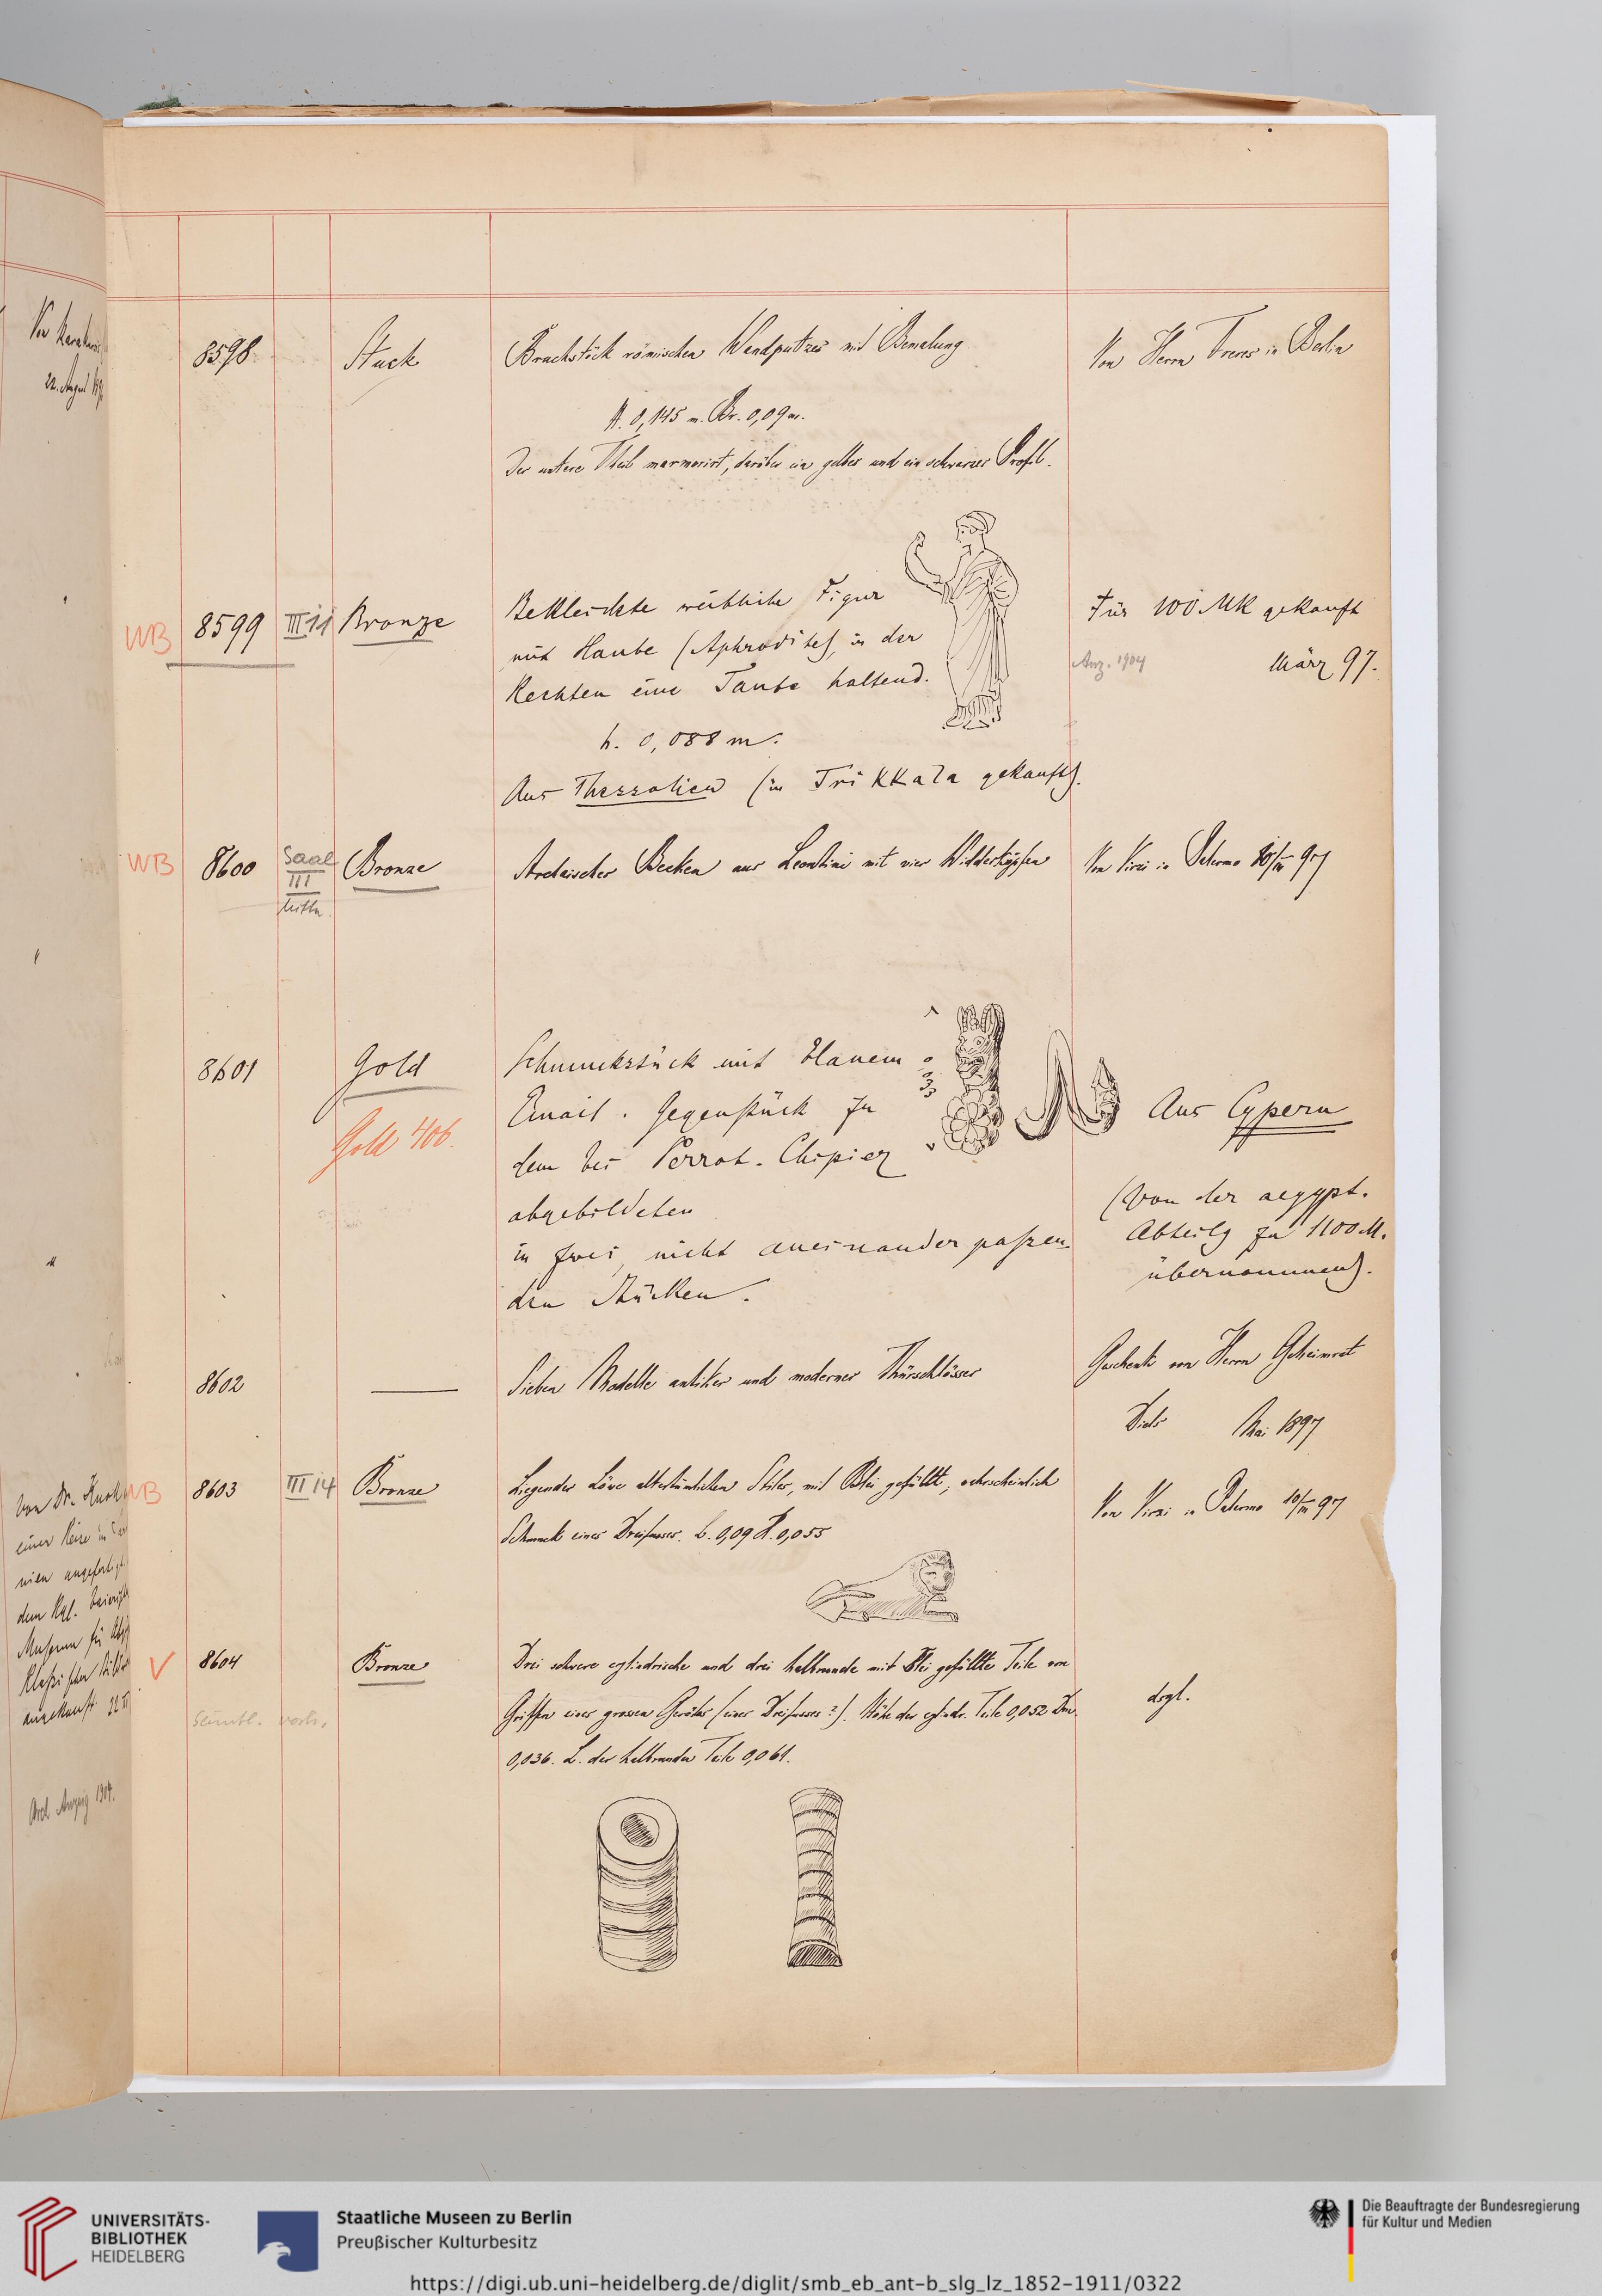 8598.
Stuck
Bruchstück römischen Wandputzes mit Bemalung.
H. 0,145 m. Br. 0,09 m.
Der untere Theil marmorirt, darüber ein gelbes und ein schwarzes Profil.
Von Herrn in Berlin
WB
8599
III 11
Bronze
Bekleidete weibliche Figur
mit Haube (Aphrodite), in der
Rechten eine Taube haltend.
h. 0,088 m.
Aus Thessalien (in Trikkala gekauft).
Für 100 MK gekauft
Anz. 1904
März 97.
WB
8600
Saal
III
Mitte
Bronze
Archaisches Becken aus Leontini mit vier Widderköpfen
Von Virzi in Palermo 97
8601
Gold
Gold 406.
Schmuckstück mit blauem
Email. Gegenstück zu
dem bei Perrot-Chipiez
abgebildeten
in zwei, nicht aneinander paßen-
den Stücken.
0,033
Aus Cypern
(Von der aegypt.
Abteilg zu 1100 M.
übernommen).
8602
Sieben Modelle antiker und moderner Thürschlösser
Geschenk von Herrn Geheimrat
Diels Mai 1897
WB
8603
III 14
Bronze
Liegender Löwe altertümlichen Stiles, mit Blei gefüllt, wahrscheinlich
Schmuck eines Dreifusses. L. 0,09 H. 0,055
Von Virzi in Palermo 97
V
8604
Sämtl. vorh.
Bronze
Drei schwere cylindrische und drei halbrunde mit Blei gefüllte Teile von
Griffen eines grossen Gerätes (eines Dreifusses?). Höhe der cylindr. Teile 0,052 Dm.
0,036. L. der halbrunden Teile 0,061.
dsgl.
22. August
Von Dr.
einer Reise in
angefertigt
dem Kgl.
Museum für
Arch. Anzeig 1904.
UNIVERSITÄTS-
BIBLIOTHEK
HEIDELBERG
Staatliche Museen zu Berlin
Preußischer Kulturbesitz
Die Beauftragte der Bundesregierung
für Kultur und Medien
https://digi.ub.uni-heidelberg.de/diglit/smb_eb_ant-b_slg_lz_1852-1911/0322